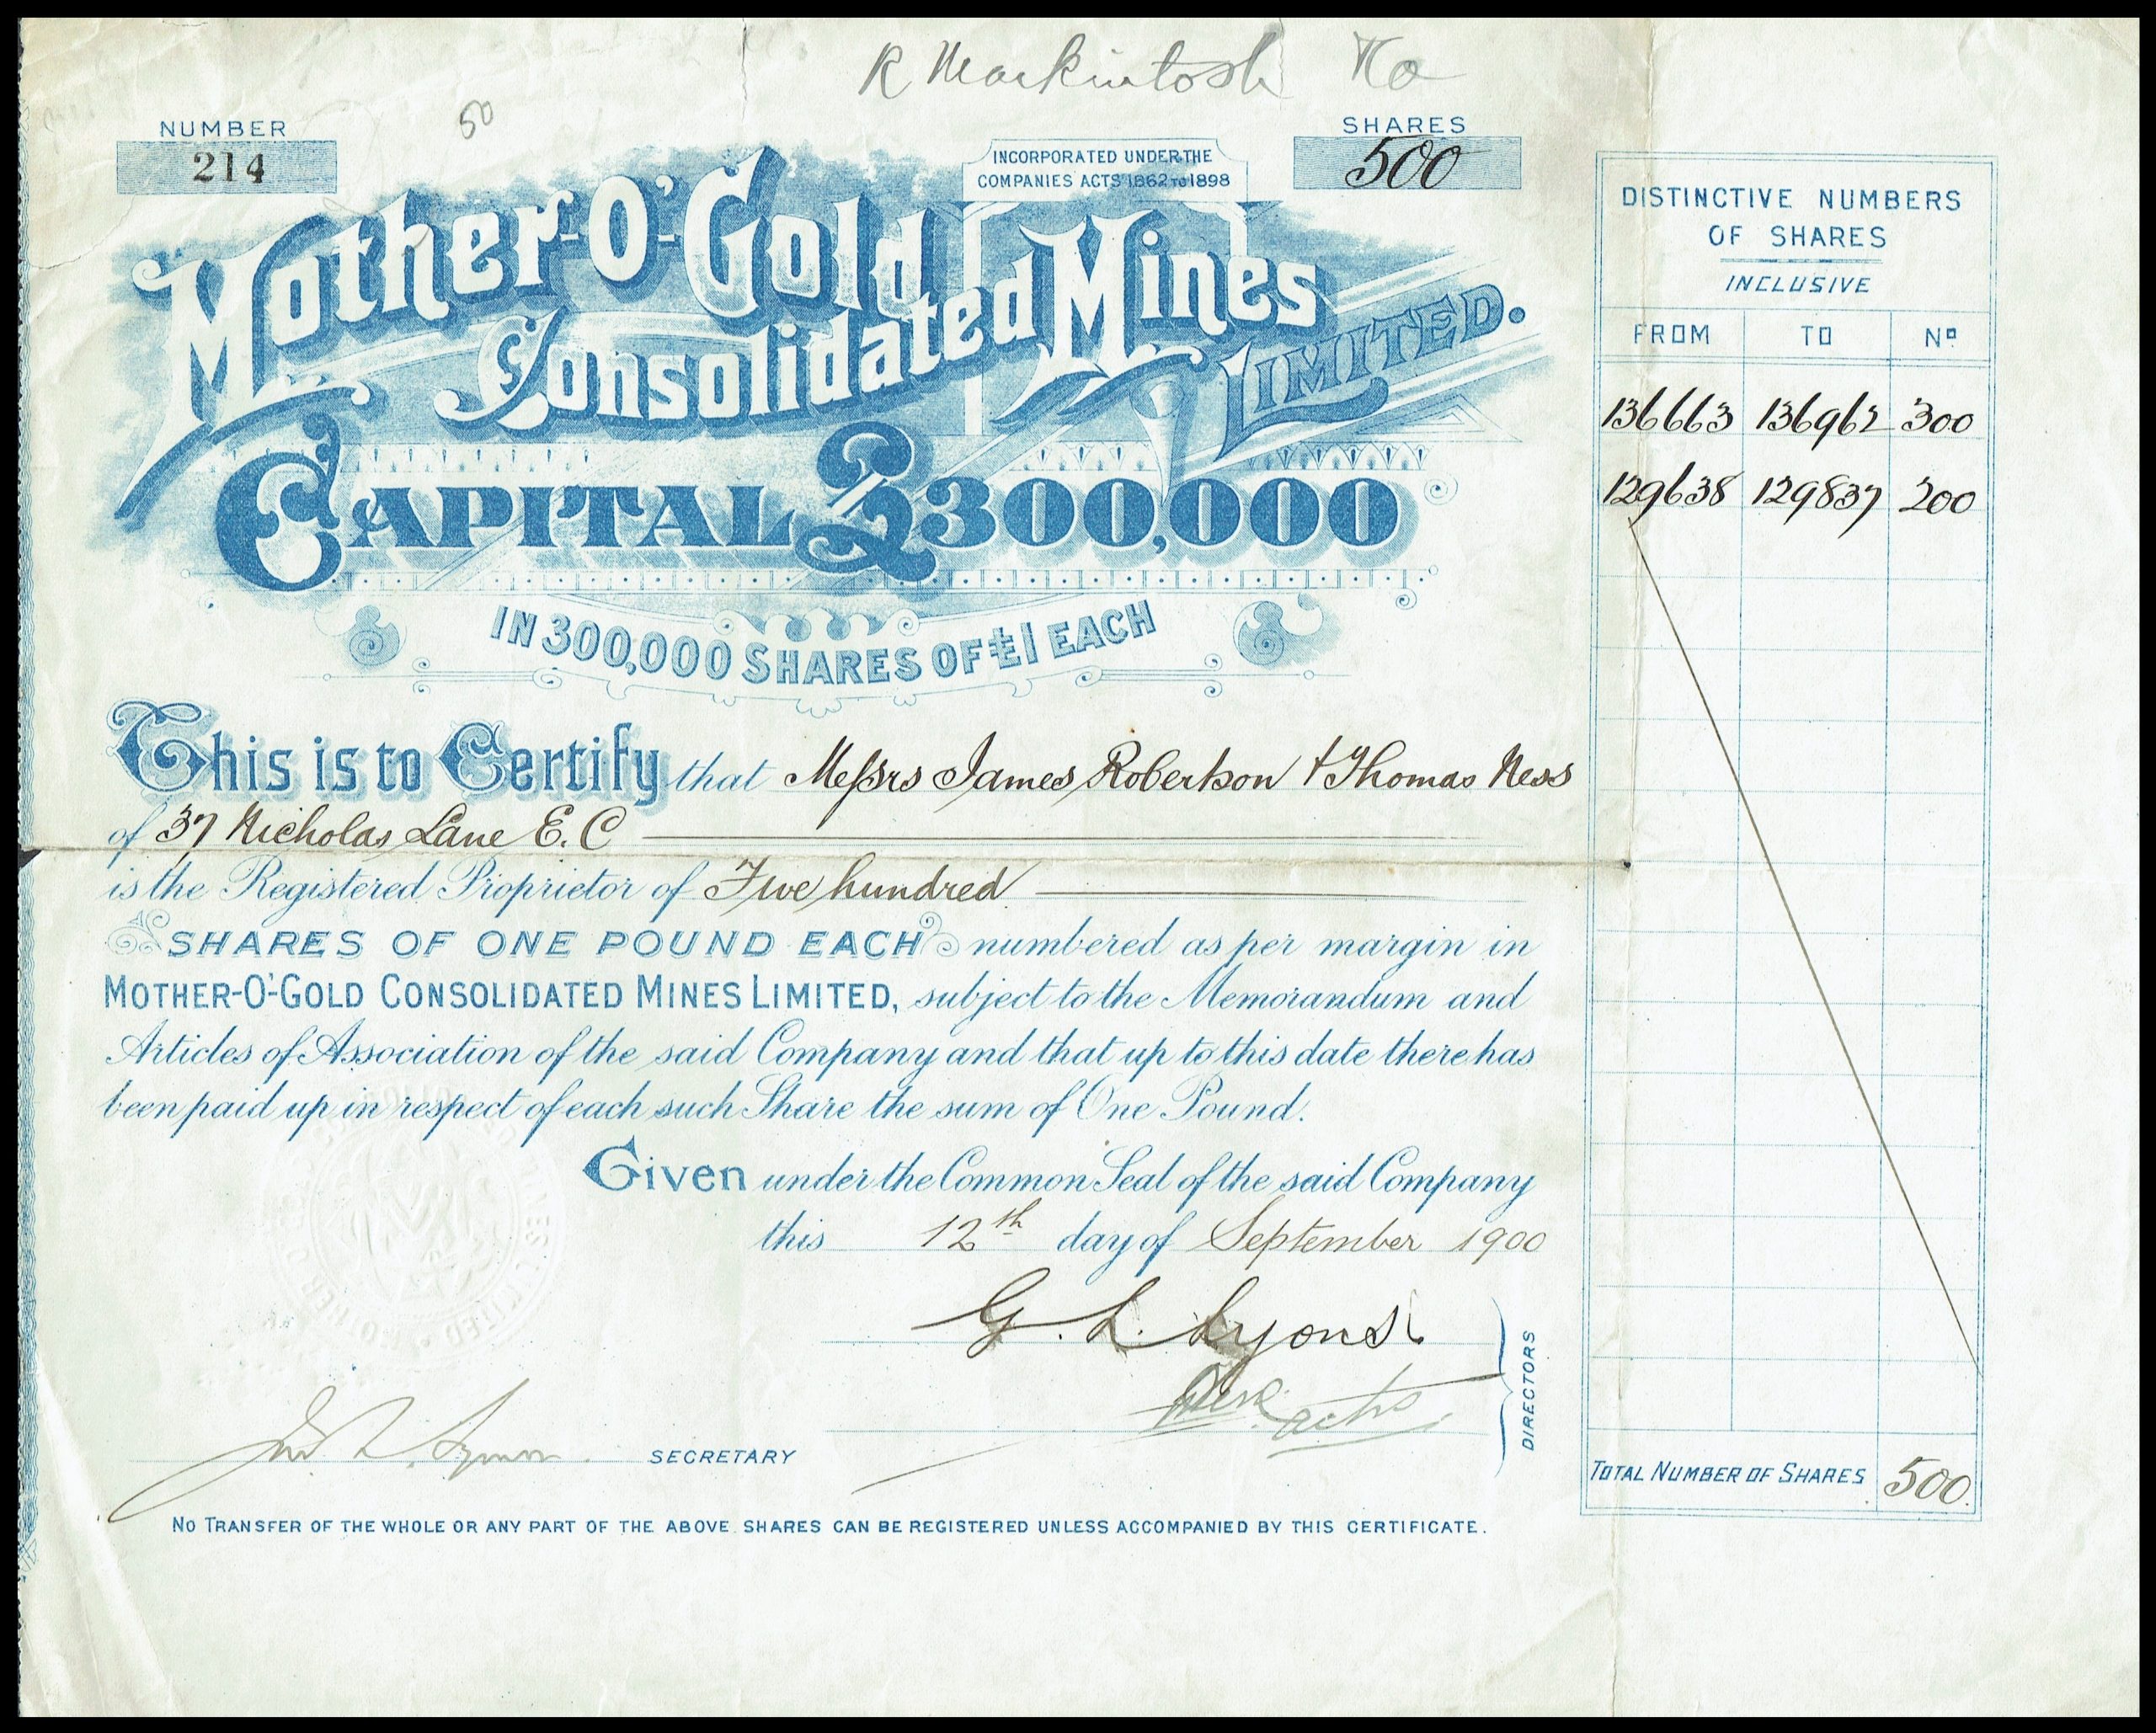 R Mackintosh & Co
50
NUMBER
214
INCORPORATED UNDER THE
COMPANIES ACTS 1862 TO 1898
SHARES
500
Mother-O'-Gold
Consolidated Mines
LIMITED.
CAPITAL £300,000
IN 300,000 SHARES OF £1 EACH
This is to Certify that Messrs James Robertson & Thomas Ness
of 37 Nicholas Lane E.C
is the Registered Proprietor of Five hundred
SHARES OF ONE POUND EACH numbered as per margin in
MOTHER-O'-GOLD CONSOLIDATED MINES LIMITED, subject to the Memorandum and
Articles of Association of the said Company and that up to this date there has
been paid up in respect of each such Share the sum of One Pound.
Given under the Common Seal of the said Company
this 12th day of September 1900
G. L. Lyons
DIRECTORS
SECRETARY
NO TRANSFER OF THE WHOLE OR ANY PART OF THE ABOVE SHARES CAN BE REGISTERED UNLESS ACCOMPANIED BY THIS CERTIFICATE.
DISTINCTIVE NUMBERS
OF SHARES
INCLUSIVE
FROM TO No
136663 136962 300
129638 129837 200
TOTAL NUMBER OF SHARES 500